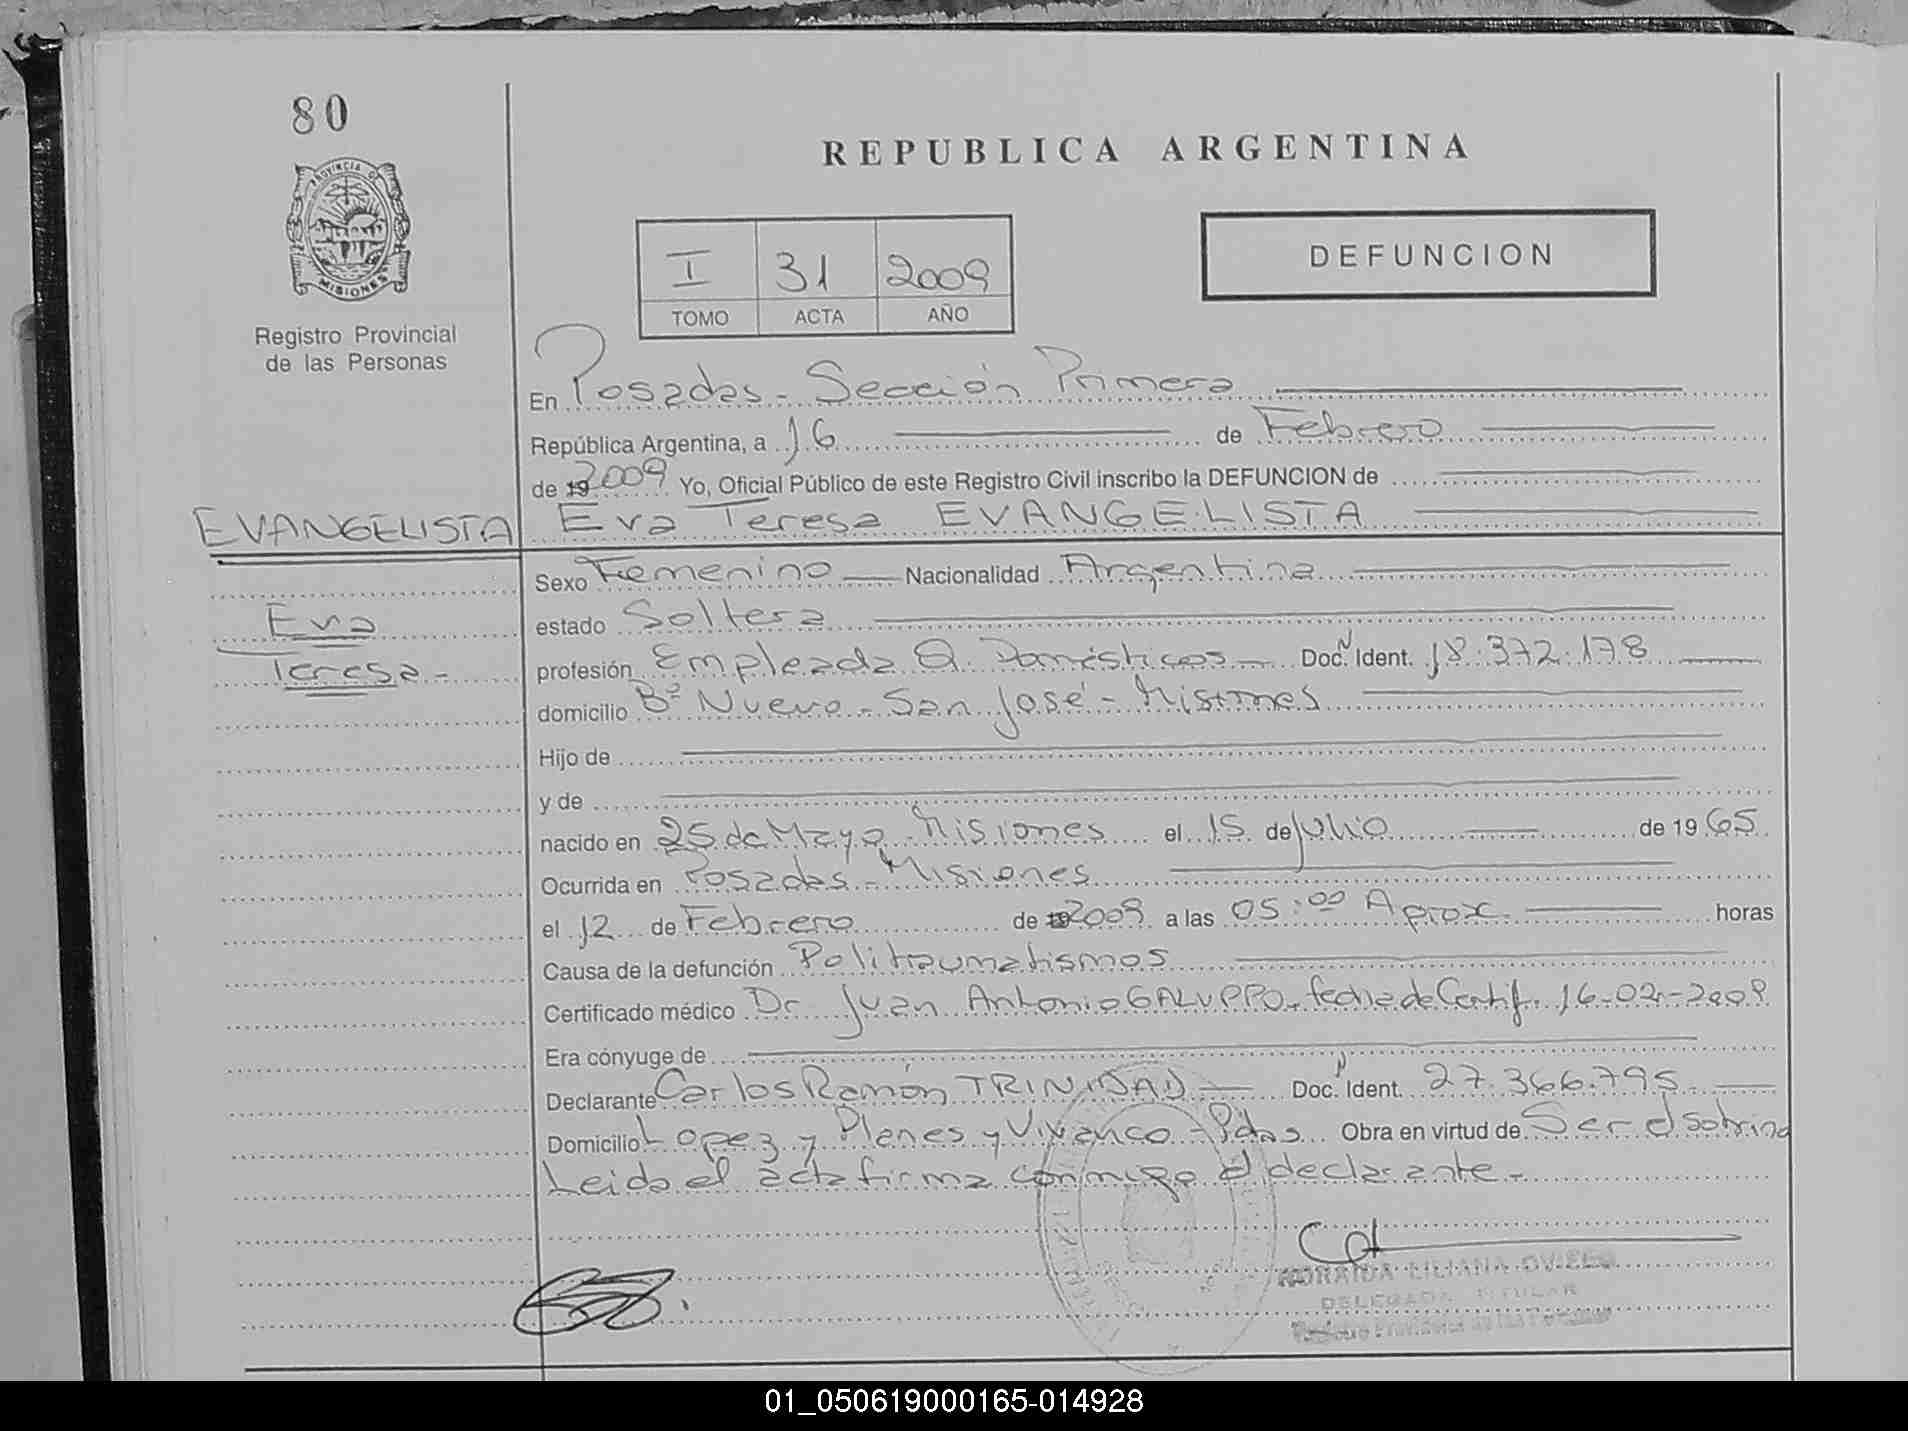 80
REPUBLICA ARGENTINA
PROVINCIA DE
MISIONES
Registro Provincial
de las Personas
I 31 2009
TOMO ACTA AÑO
DEFUNCION
En Posadas - Sección Primera
República Argentina, a 16 de Febrero
de 2009 Yo, Oficial Público de este Registro Civil inscribo la DEFUNCION de
EVANGELISTA Eva Teresa EVANGELISTA
Sexo Femenino Nacionalidad Argentina
Eva
estado Soltera
Teresa -
profesión Empleada Q. Domésticos - Doc. N Ident. 18.372.178
domicilio Bº Nuevo - San José - Misiones
Hijo de
y de
nacido en 25 de Mayo - Misiones el 15 de Julio de 1965
Ocurrida en Posadas - Misiones
el 12 de Febrero de 2009 a las 05:00 Aprox. horas
Causa de la defunción Politraumatismos
Certificado médico Dr. Juan Antonio GALUPPO - fecha de Certif. 16-02-2009
Era cónyuge de
Declarante Carlos Ramón TRINIDAD Doc. N Ident. 27.366.795
Domicilio Lopez y Planes y Vivanco - Pdas Obra en virtud de Ser el sobrino
Leida el acta firma conmigo el declarante -
NORAIDA LILIANA OVIEDO
DELEGADA TITULAR
Registro Provincial de las Personas
01_050619000165-014928